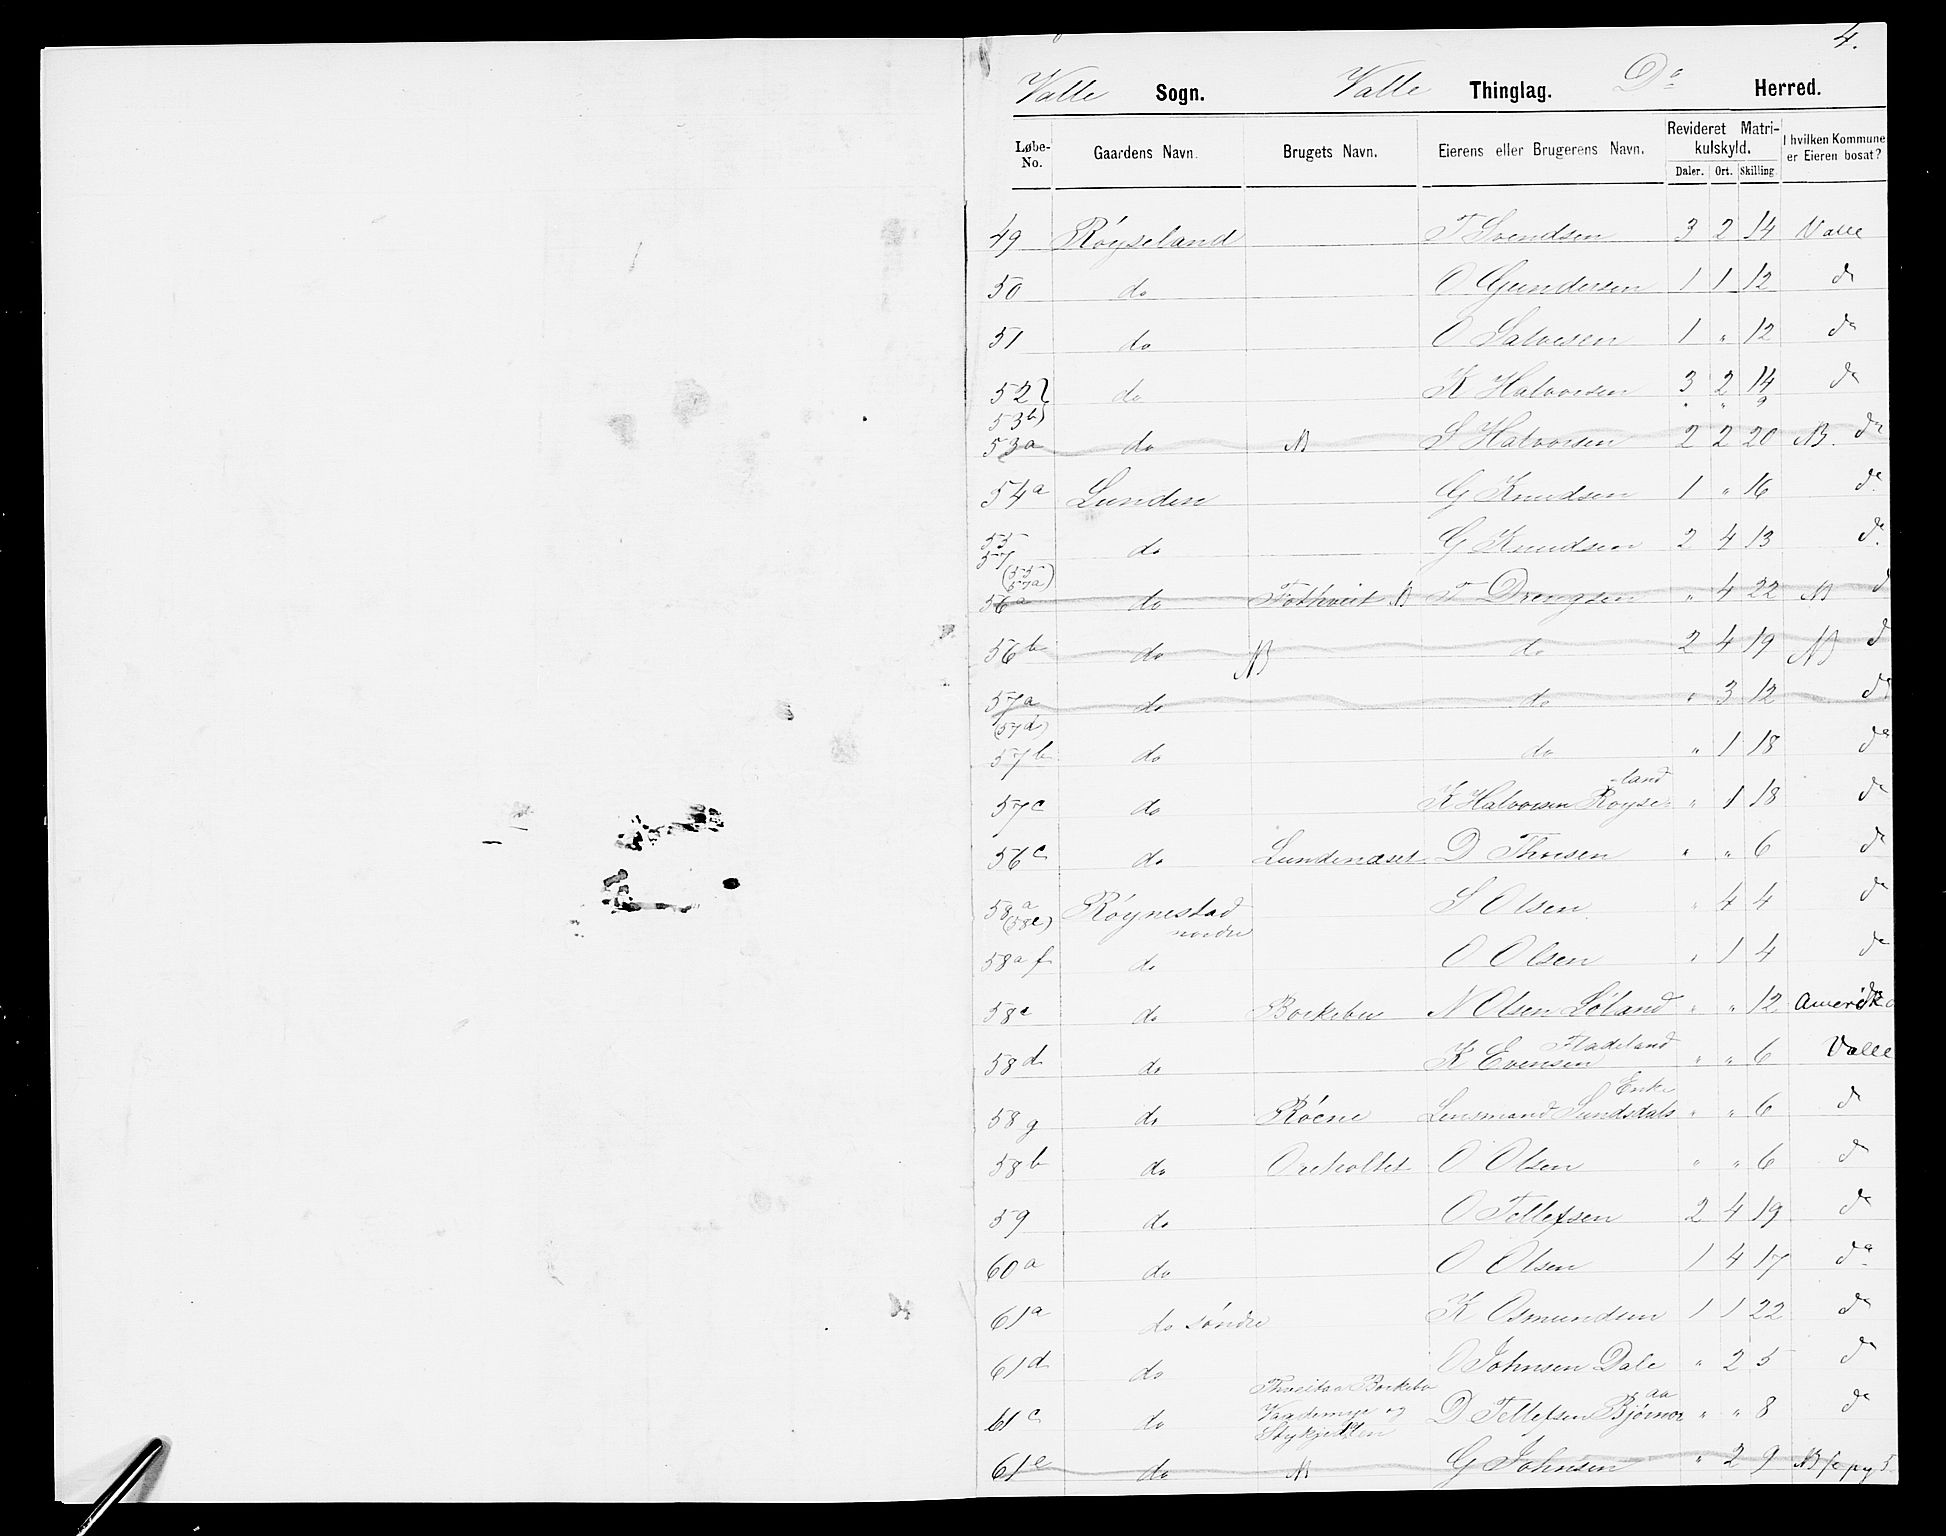 4.
Valle Sogn. Valle Thinglag. Do Herred.
Løbe-No. Gaardens Navn. Brugets Navn. Eierens eller Brugerens Navn. Revideret Matrikulskyld. Daler. Ort. Skilling. I hvilken Kommune er Eieren bosat?
49 Röyseland T Svendsen 3 2 14 Valle
50 do O Gundersen 1 1 12 do
51 do O Salvesen 1 " 12 do
52 do K Halvorsen 3 2 14 do
53b " " 9
53a do NB S Halvorsen 2 2 20 NB. do
54a Lunden G Knudsen 1 " 16 do
55 57 do G Knudsen 2 4 13 do.
(55 57a)
56a do Fothveit NB T Drengsen " 4 22 NB d
56b do NB do 2 4 19 NB d
57a do do " 3 12 do
(57d)
57b do do " 1 18 do
57c do K Halvorsen Röyseland " 1 18 do
56c do Lundenæset D Thorsen " " 6 do
58a (58e) Röynestad nordre S Olsen " 4 4 do
58a f do O Olsen " 1 4 do
58c do Boekeben N Olsen Löland " " 12 Amerika
58d do K Evensen Fladeland " " 6 Valle
58g do Röene Lensmand Sundsdals Enke " " 6 do
58b do Oreholtet O Olsen " " 6 do
59 do O Tellefsen 2 4 19 do
60a do O Olsen 1 4 17 do
61a do söndre K Osmundsen 1 1 22 do
61d do O Johnsen Dale " 2 5 do
61c do Boekebo og D Tellefsen Bjørnaraa " " 8 do
61e do NB G Johnsen " 2 9 NB